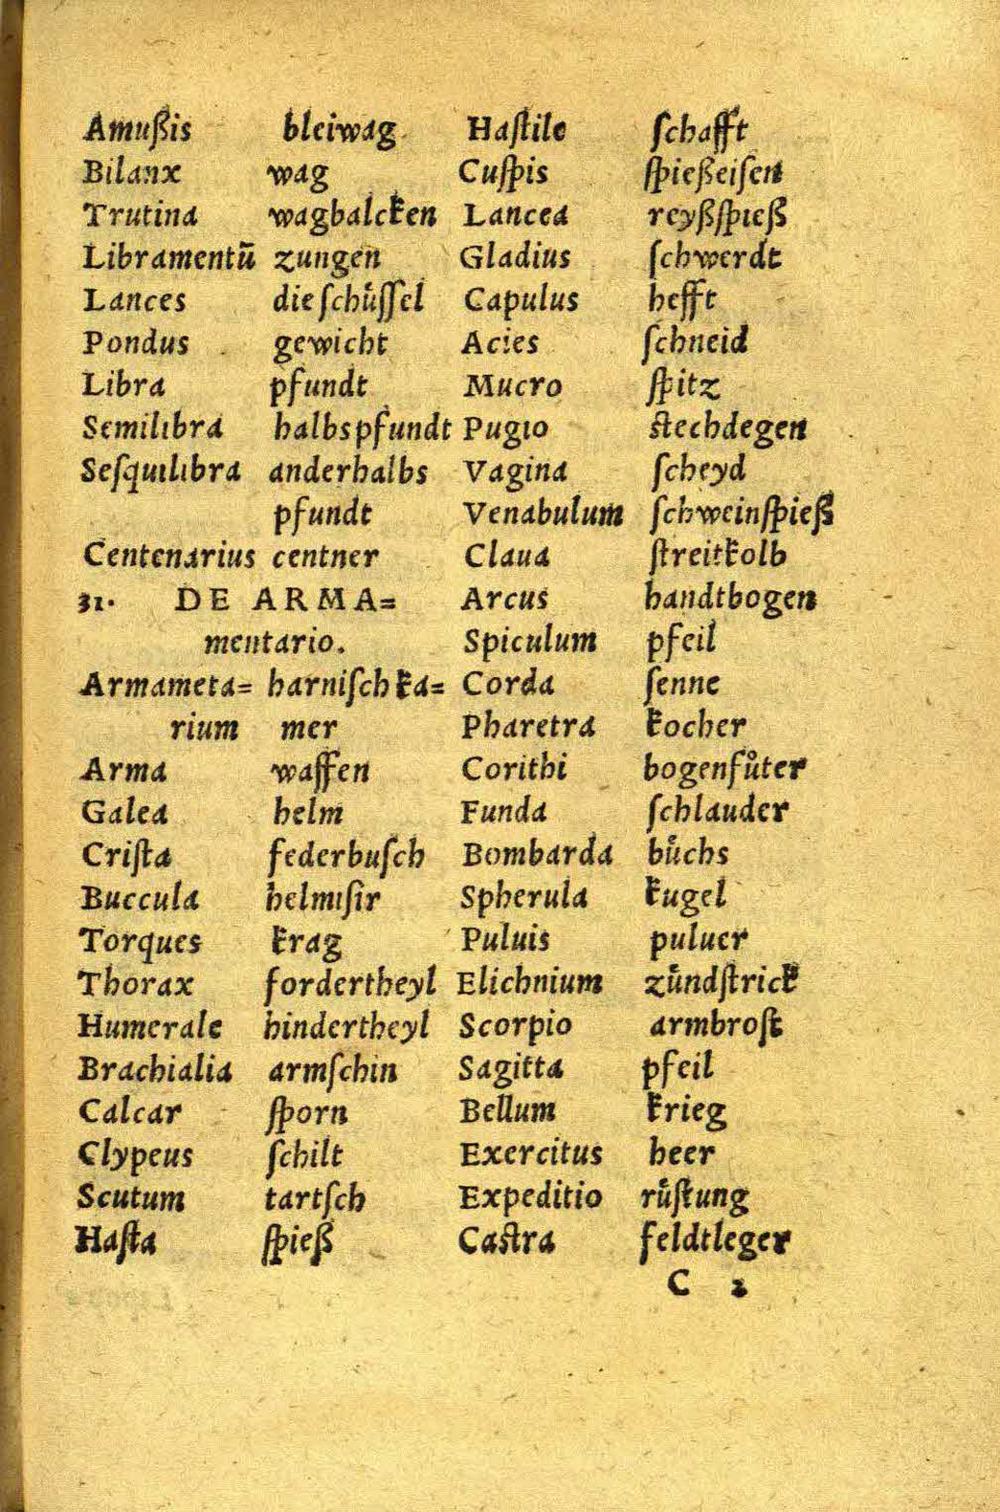 Amußis bleiwag
Bilanx wag
Trutina wagbalcken
Libramentū zungen
Lances die ſchuͤſſel
Pondus gewicht
Libra pfundt
Semilibra halbs pfundt
Seſquilibra anderhalbs
pfundt
Centenarius centner
31. DE ARMA=
mentario.
Armameta= harniſch ka=
rium mer
Arma waffen
Galea helm
Criſta federbuſch
Buccula helmiſir
Torques krag
Thorax fordertheyl
Humerale hindertheyl
Brachialia armſchin
Calcar ſporn
Clypeus ſchilt
Scutum tartſch
Haſta ſpieß
Haſtile ſchafft
Cuſpis ſpießeiſen
Lancea reyßſpieß
Gladius ſchwerdt
Capulus hefft
Acies ſchneid
Mucro ſpitz
Pugio ſtechdegen
Vagina ſcheyd
Venabulum ſchweinſpieß
Claua ſtreitkolb
Arcus handtbogen
Spiculum pfeil
Corda ſenne
Pharetra kocher
Corithi bogenfuͦter
Funda ſchlauder
Bombarda buͤchs
Spherula kugel
Puluis puluer
Elichnium zuͤndſtrick
Scorpio armbroſt
Sagitta pfeil
Bellum krieg
Exercitus heer
Expeditio ruͤſtung
Caſtra feldtleger
C 2